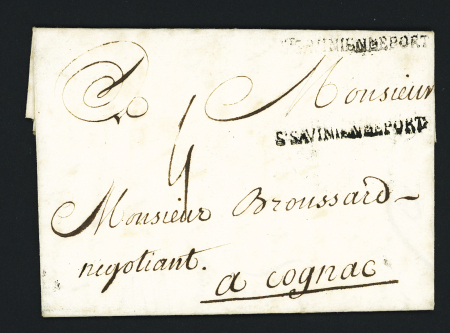 STSAVINIENLEPORT
A Monsieur
STSAVINIENLEPORT
4
Monsieur Broussard
negotiant.
a cognac